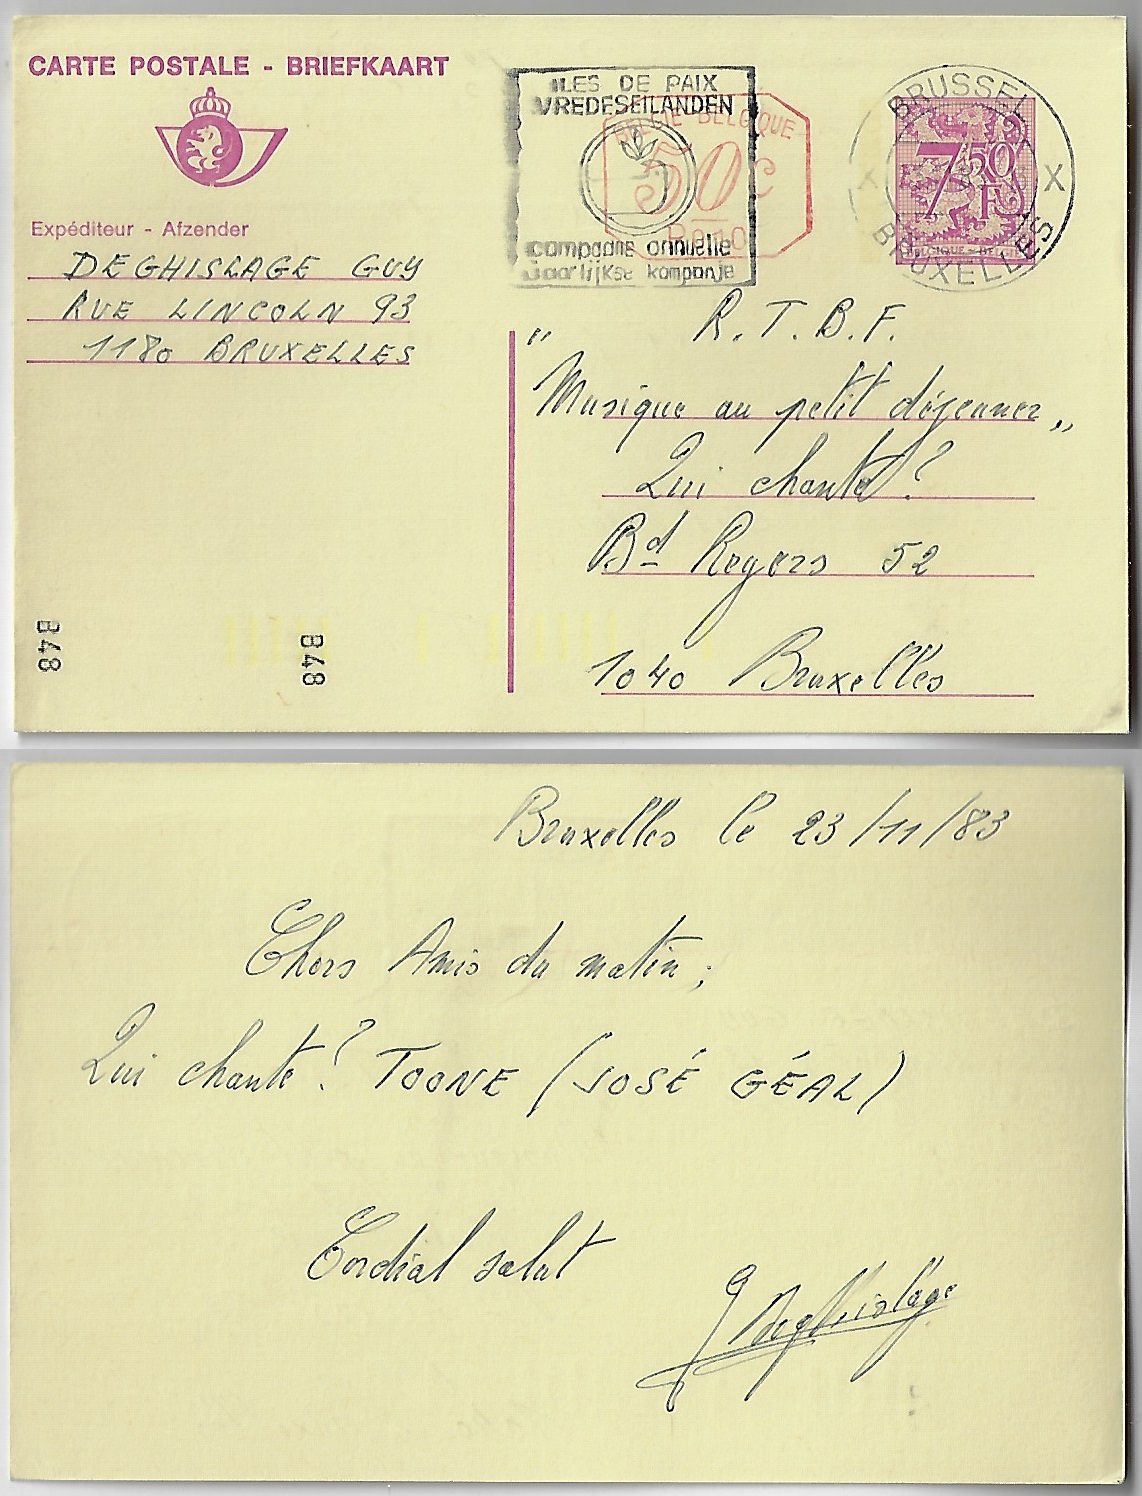 CARTE POSTALE - BRIEFKAART
Expéditeur - Afzender
DEGHISLAGE GUY
RUE LINCOLN 93
1180 BRUXELLES
848
848
ILES DE PAIX
VREDESEILANDEN
campagne annuelle
Jaarlijkse kampanje
BELGIE-BELGIQUE
50c
P010
BRUSSEL
X X
BRUXELLES
7 50 F
BELGIQUE-BELGIE
" R.T.B.F.
Musique au petit déjeuner „
Qui chante?
Bd Reyers 52
1040 Bruxelles
Bruxelles le 23/11/83
Chers Amis du matin;
Qui chante? TOONE (JOSÉ GÉAL)
Cordial salut
G Deghislage